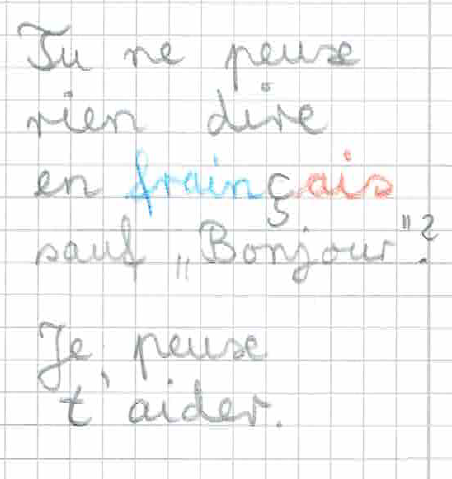 Tu ne peux
rien dire
en frainçais
sauf „Bonjour"?
Je peux
t'aider.